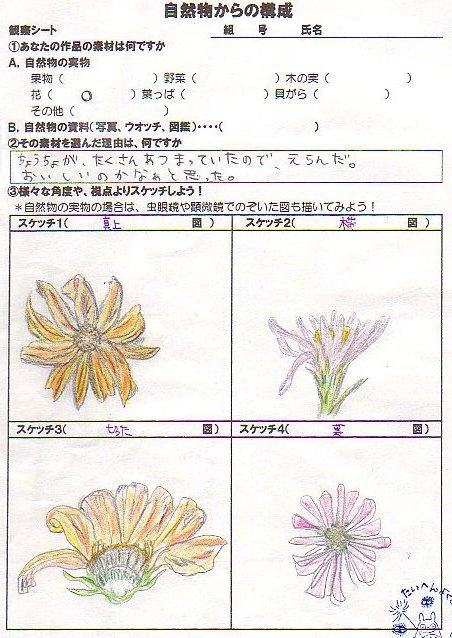 自然物からの構成
観察シート 組 号 氏名
①あなたの作品の素材は何ですか
A. 自然物の実物
果物( )野菜( )木の実( )
花( ○ )葉っぱ( )貝がら( )
その他( )
B. 自然物の資料(写真、ウオッチ、図鑑)・・・・( )
②その素材を選んだ理由は、何ですか
ちょうちょが、たくさんあつまっていたので、えらんだ。
おいしいのかなぁと思った。
③様々な角度や、視点よりスケッチしよう!
*自然物の実物の場合は、虫眼鏡や顕微鏡でのぞいた図も描いてみよう!
スケッチ1( 真上 図) スケッチ2( 横 図)
スケッチ3( 図) スケッチ4( 裏 図)
たいへんよく